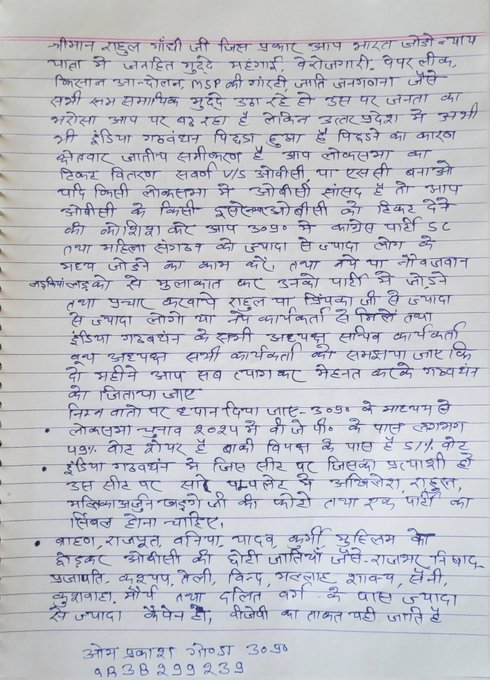 श्रीमान राहुल गाँधी जी जिस प्रकार आप भारत जोडो न्याय
यात्रा में जनहित मुद्दे महंगाई, बेरोजगारी, पेपर लीक,
किसान आन्दोलन, MSP की गारंटी, जाति जनगणना जैसे
सभी सम सामयिक मुद्दे उठा रहे हो उस पर जनता का
भरोसा आप पर बढ़ रहा है लेकिन उत्तर प्रदेश में अभी
भी इंडिया गठबंधन पिछड़ा हुआ है पिछड़ने का कारण
क्षेत्रवार जातीय समीकरण है आप लोकसभा का
टिकट वितरण सवर्ण V/S ओबीसी या एससी बनाओ
यदि किसी लोकसभा में ओबीसी सांसद है तो आप
ओबीसी के किसी ओबीसी को टिकट देने
की कोशिश करे आप उ०प्र० में कांग्रेस पार्टी SC
तथा महिला संगठन को ज्यादा से ज्यादा लोग के
मध्य जोड़ने का काम करें, तथा नये या नौवजवान
लड़कियो लड़को से मुलाकात कर उनको पार्टी में जोड़ने
तथा प्रचार करवाये राहुल या प्रियंका जी से ज्यादा
से ज्यादा लोगो या नये कार्यकर्ता से मिलें तथा
इंडिया गठबंधन के सभी अध्यक्ष सचिव कार्यकर्ता
बूथ अध्यक्ष सभी कार्यकर्ता को समझाया जाए कि
दो महीने आप सब त्याग कर मेहनत करके गठबंधन
को जिताया जाए
निम्न बातो पर ध्यान दिया जाए - उ०प्र० के माध्यम से
• लोकसभा चुनाव २०२४ में बी.जे.पी० के पास लगभग
४९% वोट शेयर है बाकी विपक्ष के पास है 51% वोट
• इंडिया गठबंधन में जिस सीट पर जिसका प्रत्याशी हो
उस सीट पर पम्पलेट में अखिलेश, राहुल,
मल्लिकाअर्जुन खड़गे जी की फोटो तथा एक पार्टी का
सिंबल होना चाहिए,
• ब्राहण, राजपूत, बनिया, यादव, कुर्मी मुस्लिम को
छोड़कर ओबीसी की छोटी जातियाँ जैसे- राजभर निषाद,
प्रजापति, कश्यप, तेली, बिन्द, मल्लाह, शाक्य, सैनी,
कुशवाहा, मौर्य तथा दलित वर्ग के पास ज्यादा
से ज्यादा कैपेन हो, बीजेपी का ताकत यही जाति है
ओम प्रकाश गोण्डा उ०प्र०